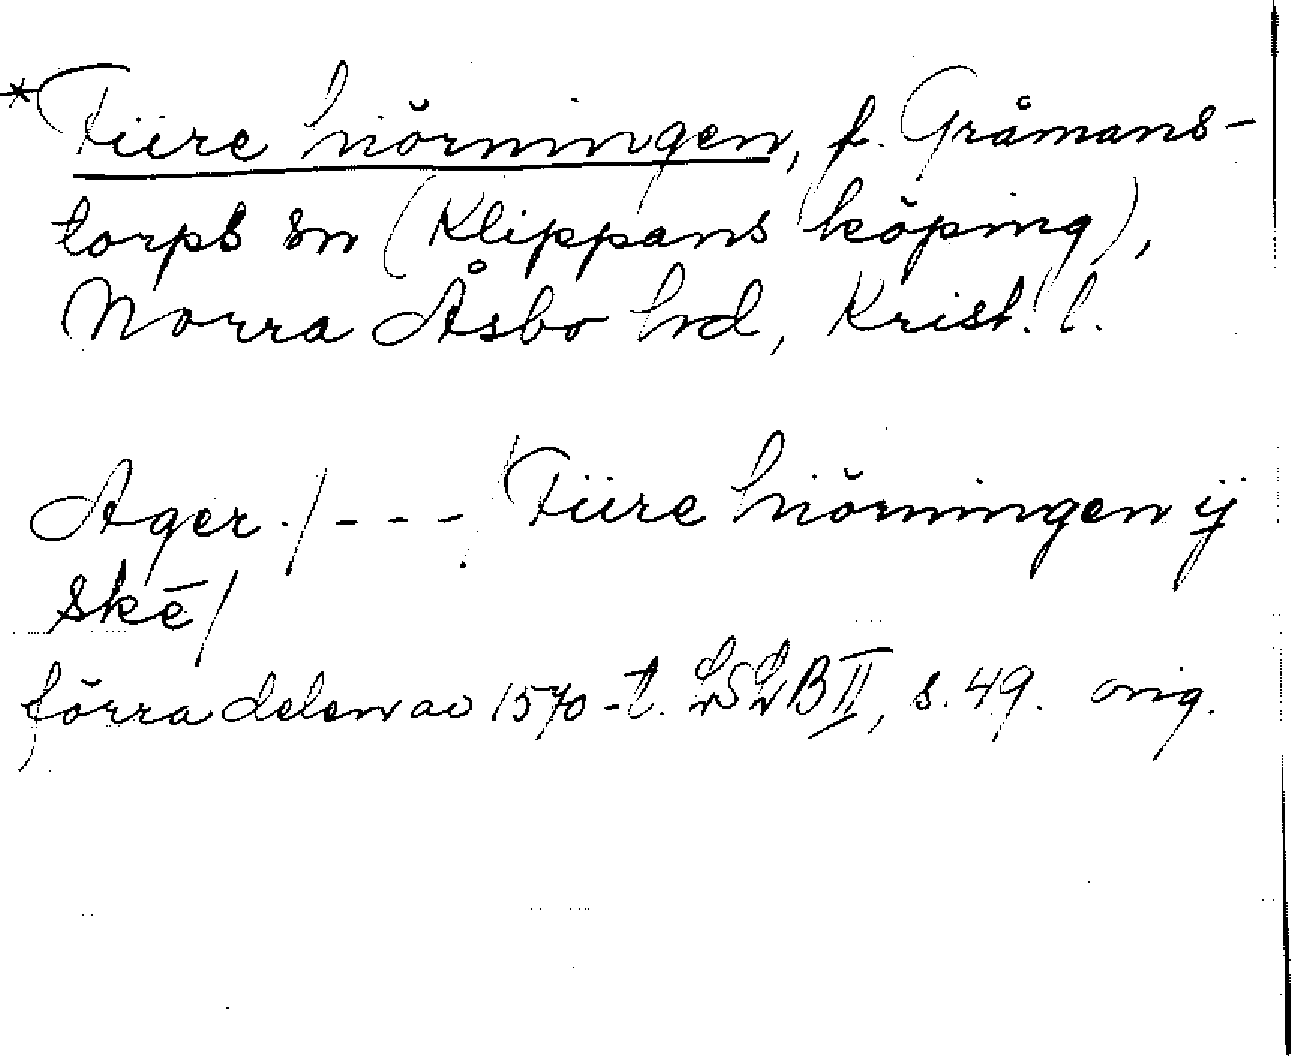 *Fiire hiörningen, f. Gråmans-
torps sn (Klippans köping),
Norra Åsbo hd, Krist. l.
Ager. / - - - Fiire hiörningen ij
skē /
förra delen av 1570-t. LSLB II, s. 49. orig.